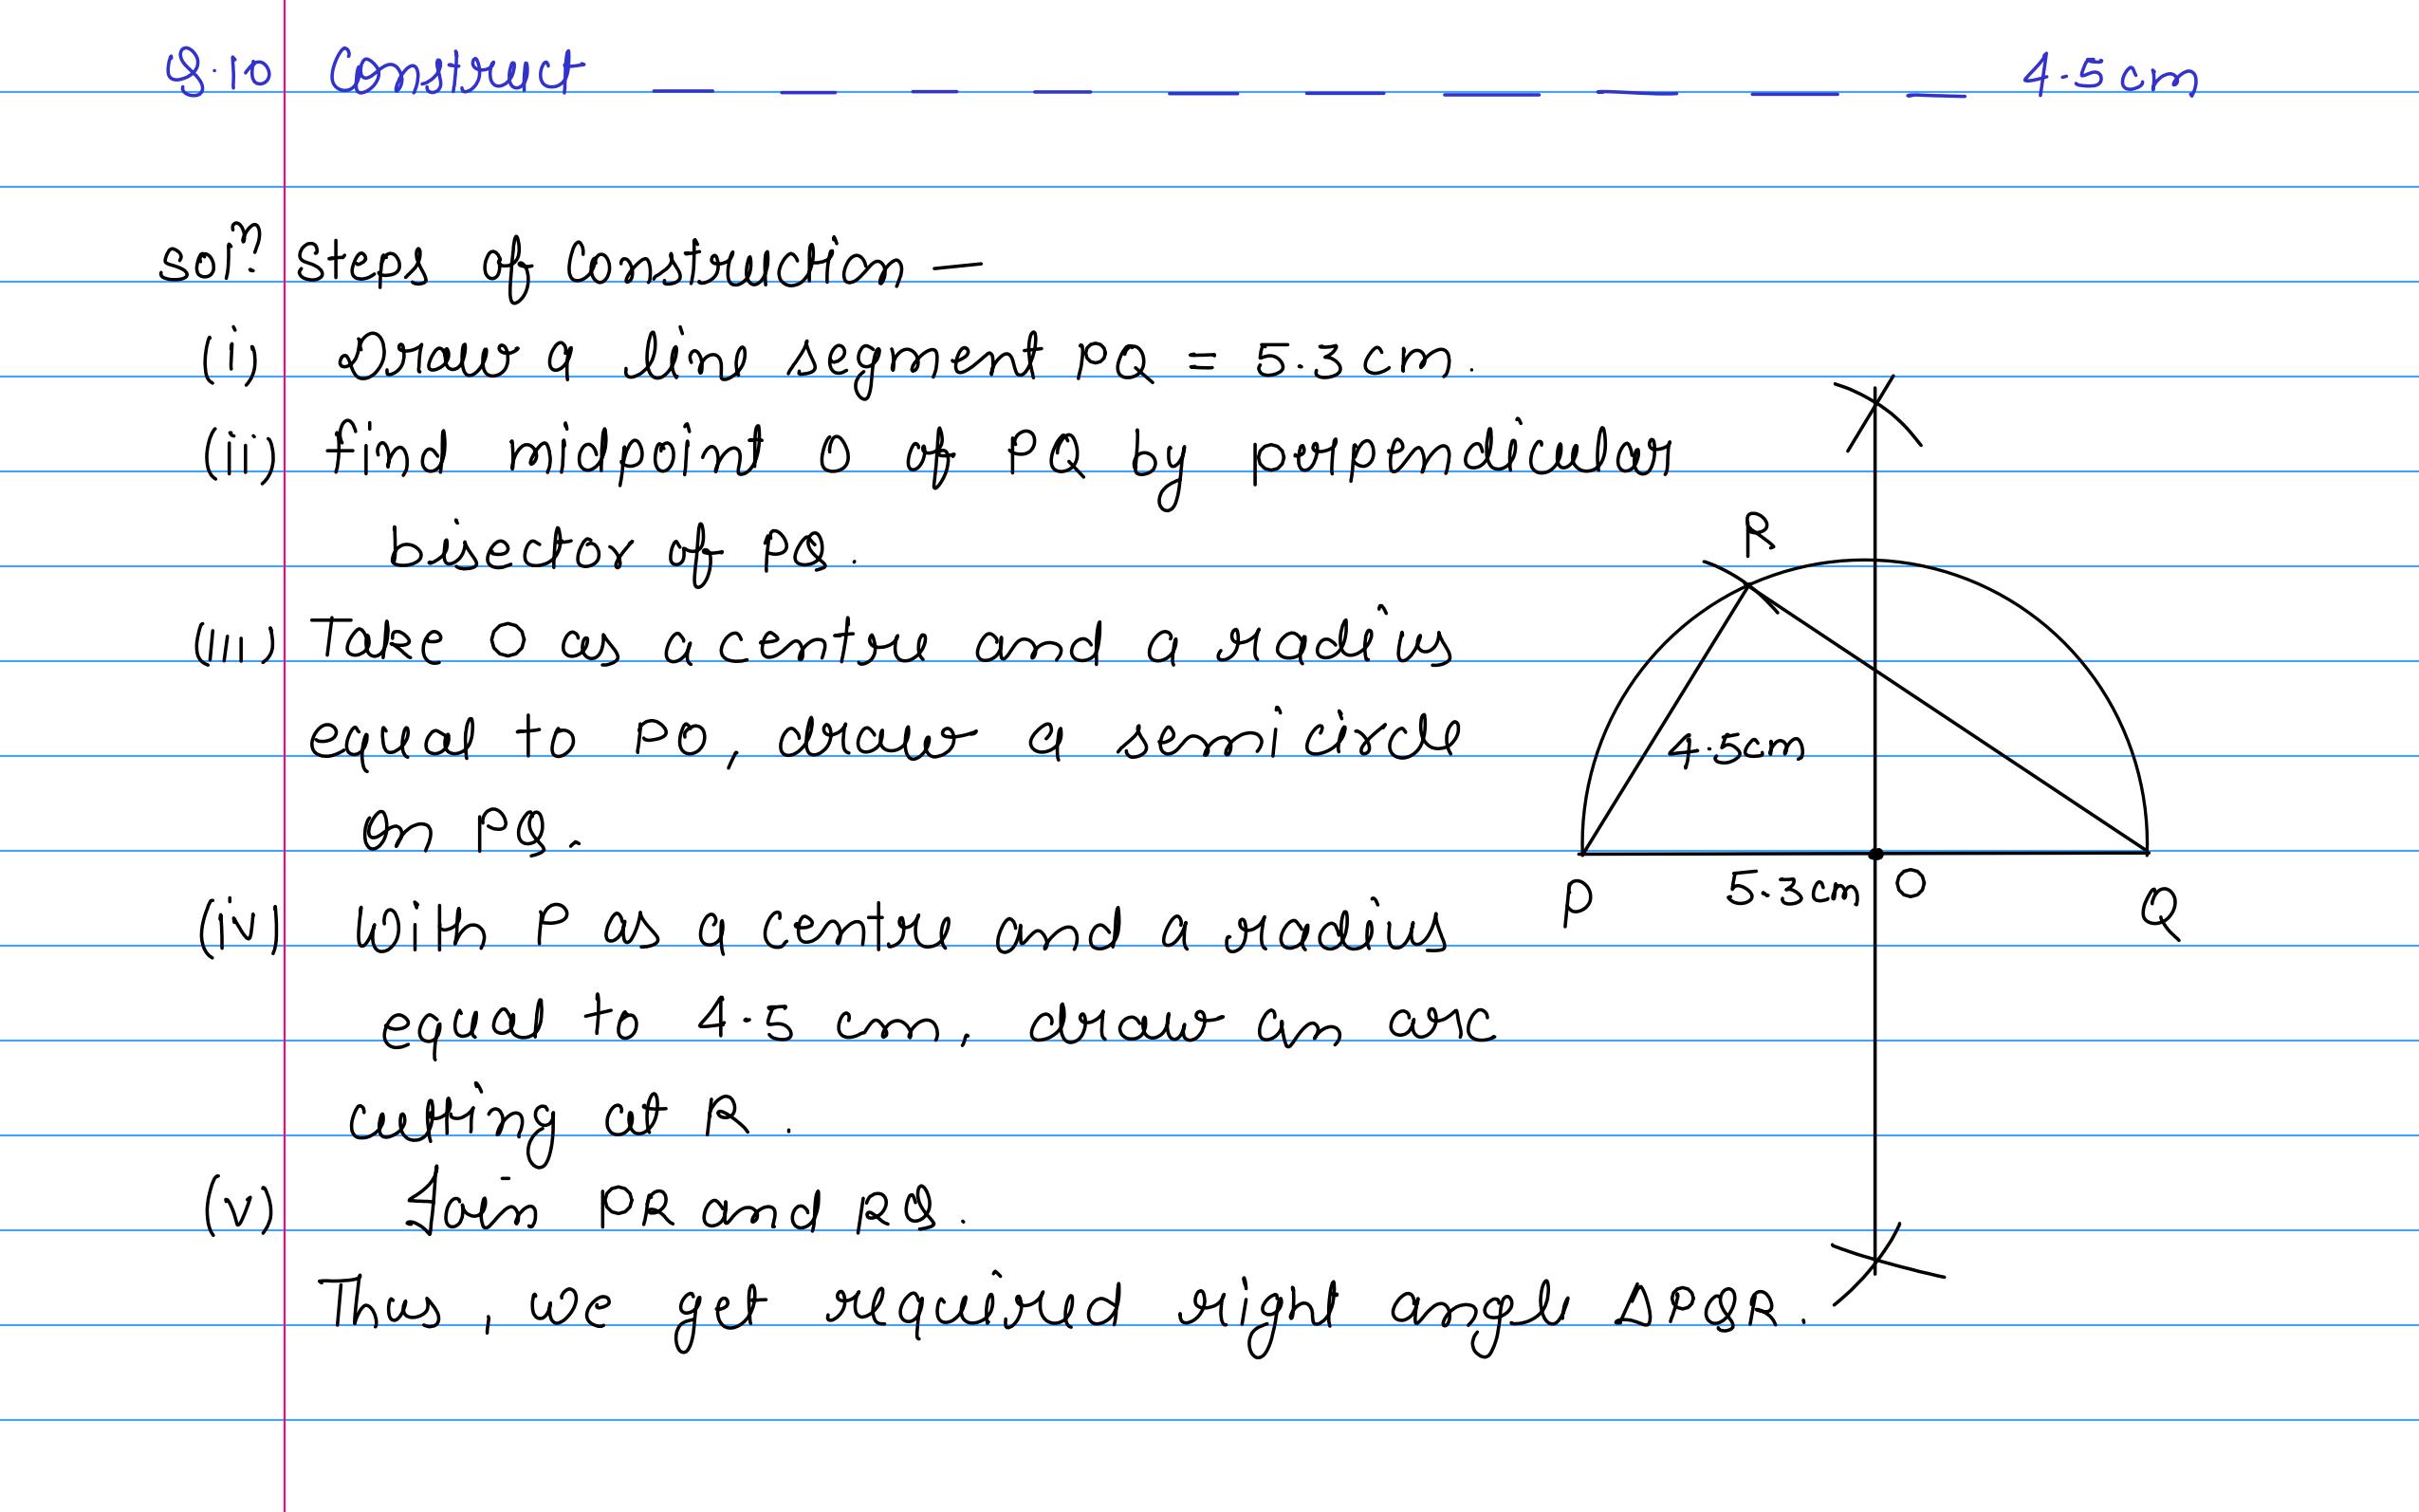 Q.10 Construct _ _ _ _ _ _ _ _ _ _ 4.5 cm
Solⁿ. Steps of Construction —
(i) Draw a line segment PQ = 5.3 cm.
(ii) find midpoint O of PQ by perpendicular
bisector of PQ.
(iii) Take O as a centre and a radius
equal to PO, draw a semi circle
on PQ.
(iv) With P as a centre and a radius
equal to 4.5 cm, draw an arc
cutting at R.
(v) Join PR and RQ.
Thus, we get required right angle ΔPQR.
R
4.5cm
P 5.3cm O Q